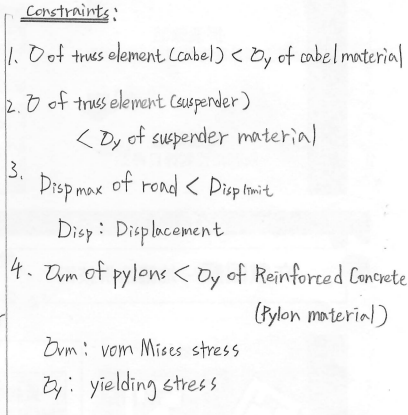 Constraints:
1. σ of truss element (cabel) < σy of cabel material
2. σ of truss element (suspender)
< σy of suspender material
3. Disp max of road < Disp limit
Disp : Displacement
4. σvm of pylons < σy of Reinforced Concrete
(Pylon material)
σvm : vom Mises stress
σy : yielding stress